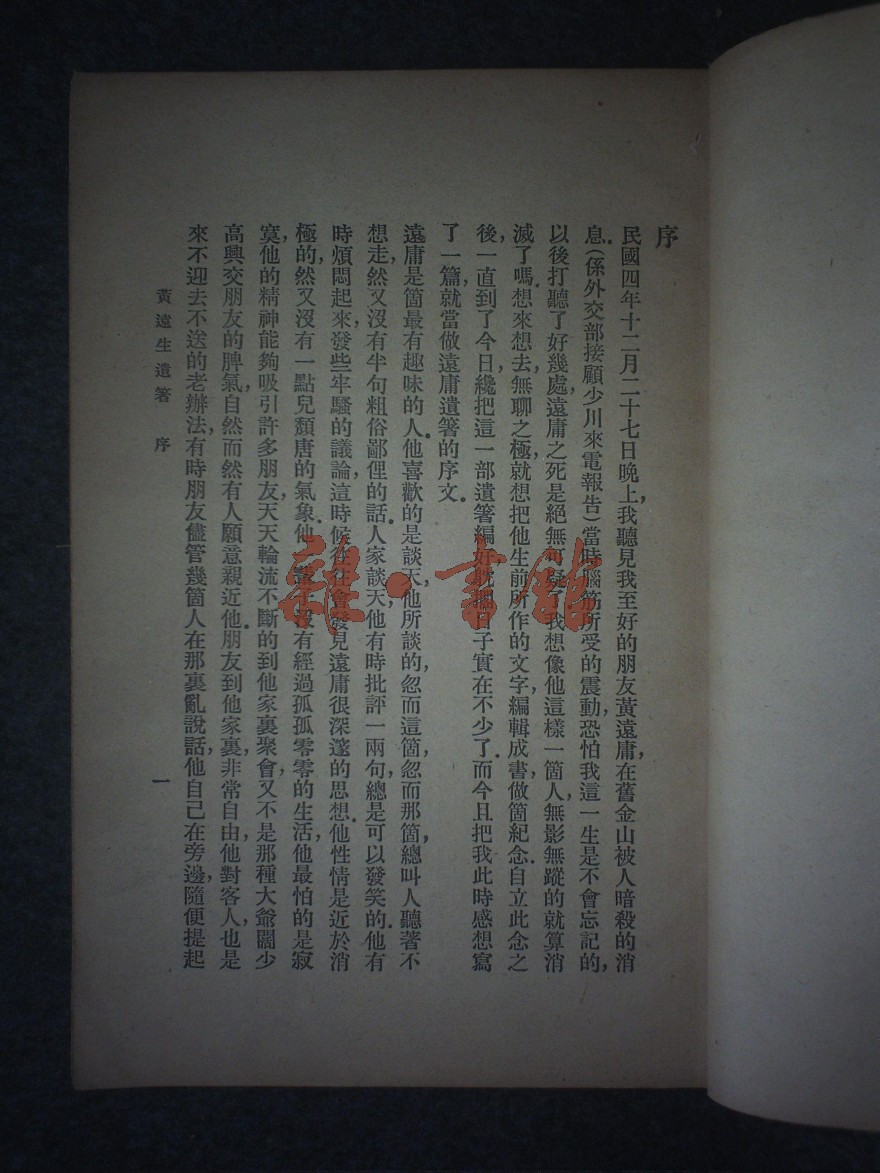 序
民國四年十二月二十七日晚上，我聽見我至好的朋友黃遠庸，在舊金山被人暗殺的消
息，（係外交部接顧少川來電報告）當時腦筋所受的震動，恐怕我這一生是不會忘記的，
以後打聽了好幾處，遠庸之死是絕無可疑了，我想像他這樣一箇人，無影無蹤的就算消
滅了嗎，想來想去，無聊之極，就想把他生前所作的文字，編輯成書，做箇紀念。自立此念之
後，一直到了今日，纔把這一部遺箸編好，就把日子實在不少了。而今且把我此時感想寫
了一篇，就當做遠庸遺箸的序文。
遠庸是箇最有趣味的人。他喜歡的是談天，他所談的，忽而這箇，忽而那箇，總叫人聽著不
想走，然又沒有半句粗俗鄙俚的話，人家談天，他有時批評一兩句，總是可以發笑的。他有
時煩悶起來，發些牢騷的議論，這時候往往會發見遠庸很深邃的思想。他性情是近於消
極的，然又沒有一點兒頹唐的氣象。他 沒有經過孤孤零零的生活，他最怕的是寂
寞，他的精神能夠吸引許多朋友，天天輪流不斷的到他家裏聚會，又不是那種大爺闊少
高興交朋友的脾氣，自然而然有人願意親近他。朋友到他家裏，非常自由，他對客人，也是
來不迎去不送的老辦法，有時朋友儘管幾箇人在那裏亂說話，他自己在旁邊，隨便提起
黃遠生遺箸 序
一
雜·書館